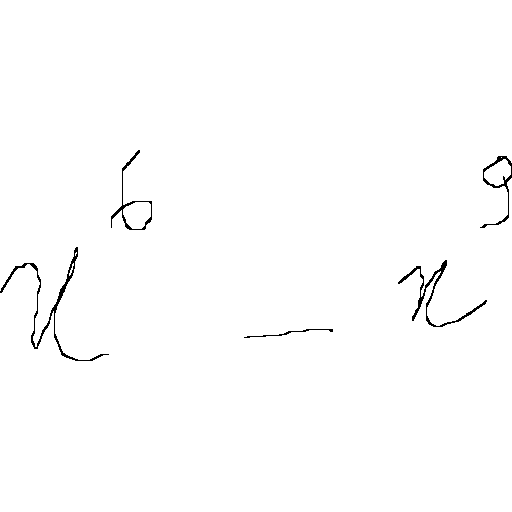 x^6 - x^9